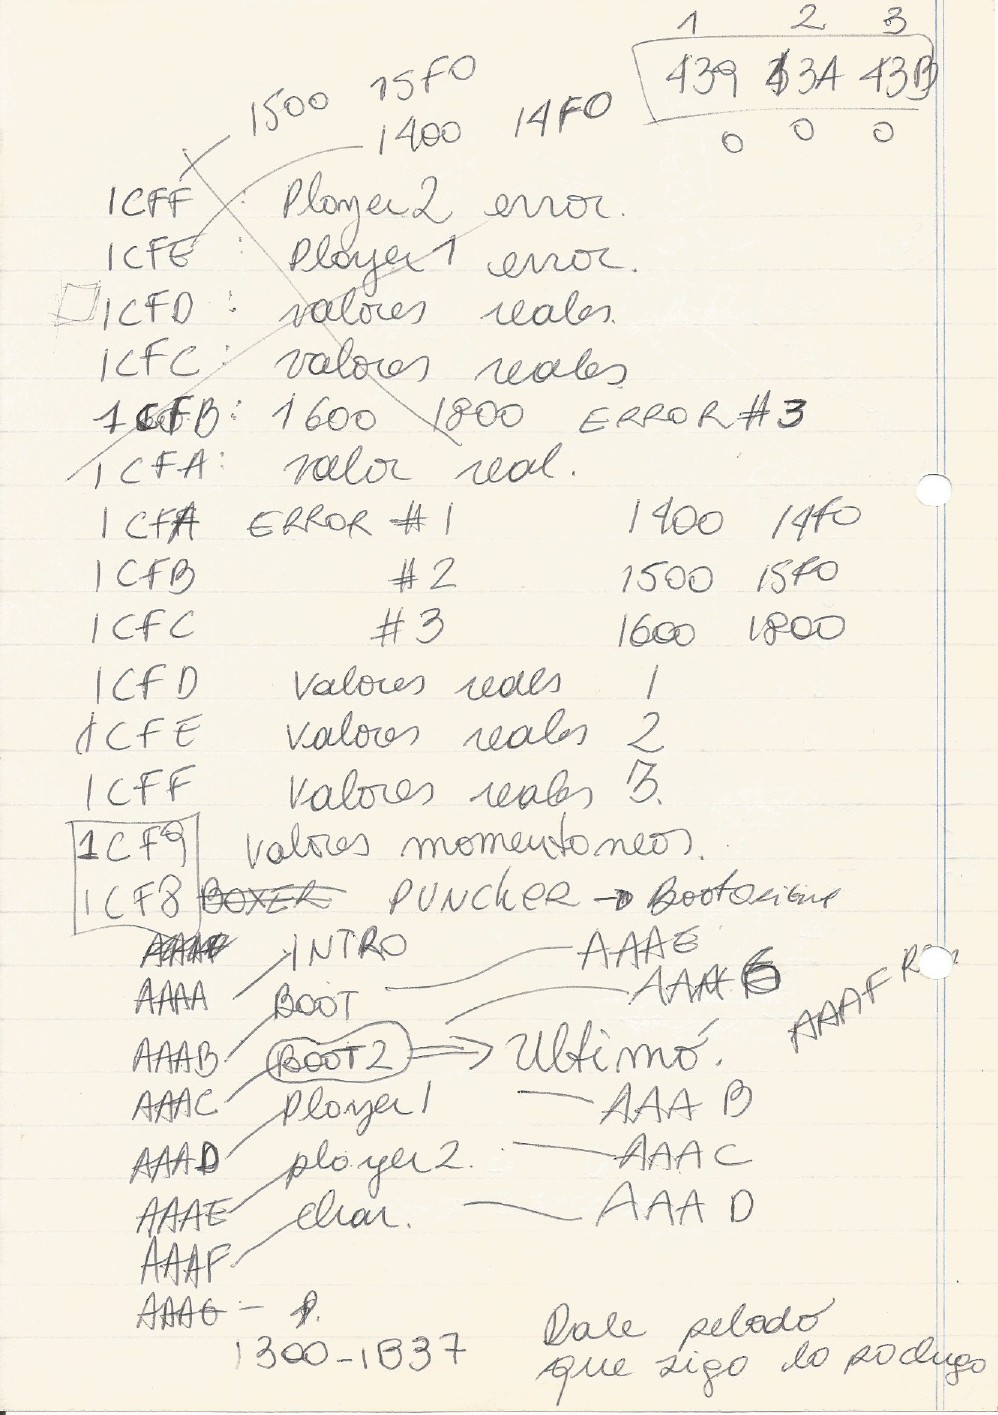 1 2 3
439 43A 43B
0 0 0
1500 15F0
1400 14F0
1CFF : Player2 error.
1CFE : Player1 error.
1CFD : valores reales.
1CFC : valores reales
1CFB : 1600 1800 ERROR #3
1CFA : valor real.
1CFA ERROR #1 1400 14F0
1CFB #2 1500 15F0
1CFC #3 1600 1800
1CFD Valores reales 1
1CFE Valores reales 2
1CFF Valores reales 3.
1CF9 Valores momentaneos.
1CF8 BOXER PUNCHER → Boot
INTRO AAAE
AAAA BOOT
AAAF
AAAB BOOT2 ⇒ Ultimó.
AAAC Player1 AAAB
AAAD player2. AAAC
AAAE char. AAAD
AAAF
AAAG -
1300-1B37
Dale pelado
que sigo lo